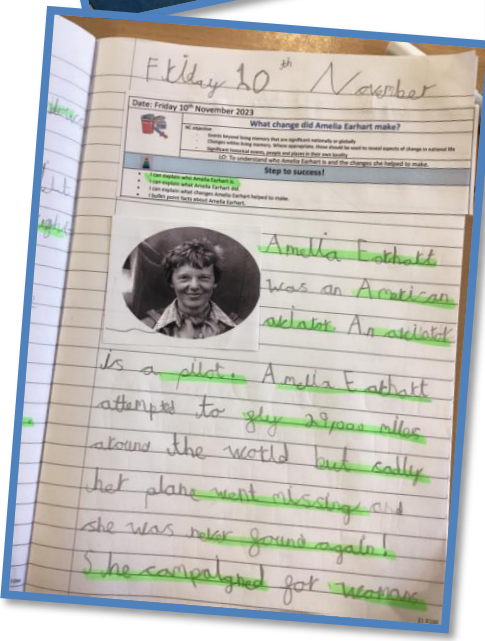 Friday 10th November
Date: Friday 10th November 2023
What change did Amelia Earhart make?
NC objective
Events beyond living memory that are significant nationally or globally
Changes within living memory. Where appropriate, these should be used to reveal aspects of change in national life
Significant historical events, people and places in their own locality
LO: To understand who Amelia Earhart is and the changes she helped to make.
Step to success!
I can explain who Amelia Earhart is.
I can explain what Amelia Earhart did.
I can explain what changes Amelia Earhart helped to make.
I bullet point facts about Amelia Earhart.
Amelia Earhart
was an American
aviator. An aviator
is a pilot. Amelia Earhart
attempted to fly 29,000 miles
around the world but sadly
her plane went missing and
she was never found again!
She campaigned for womans